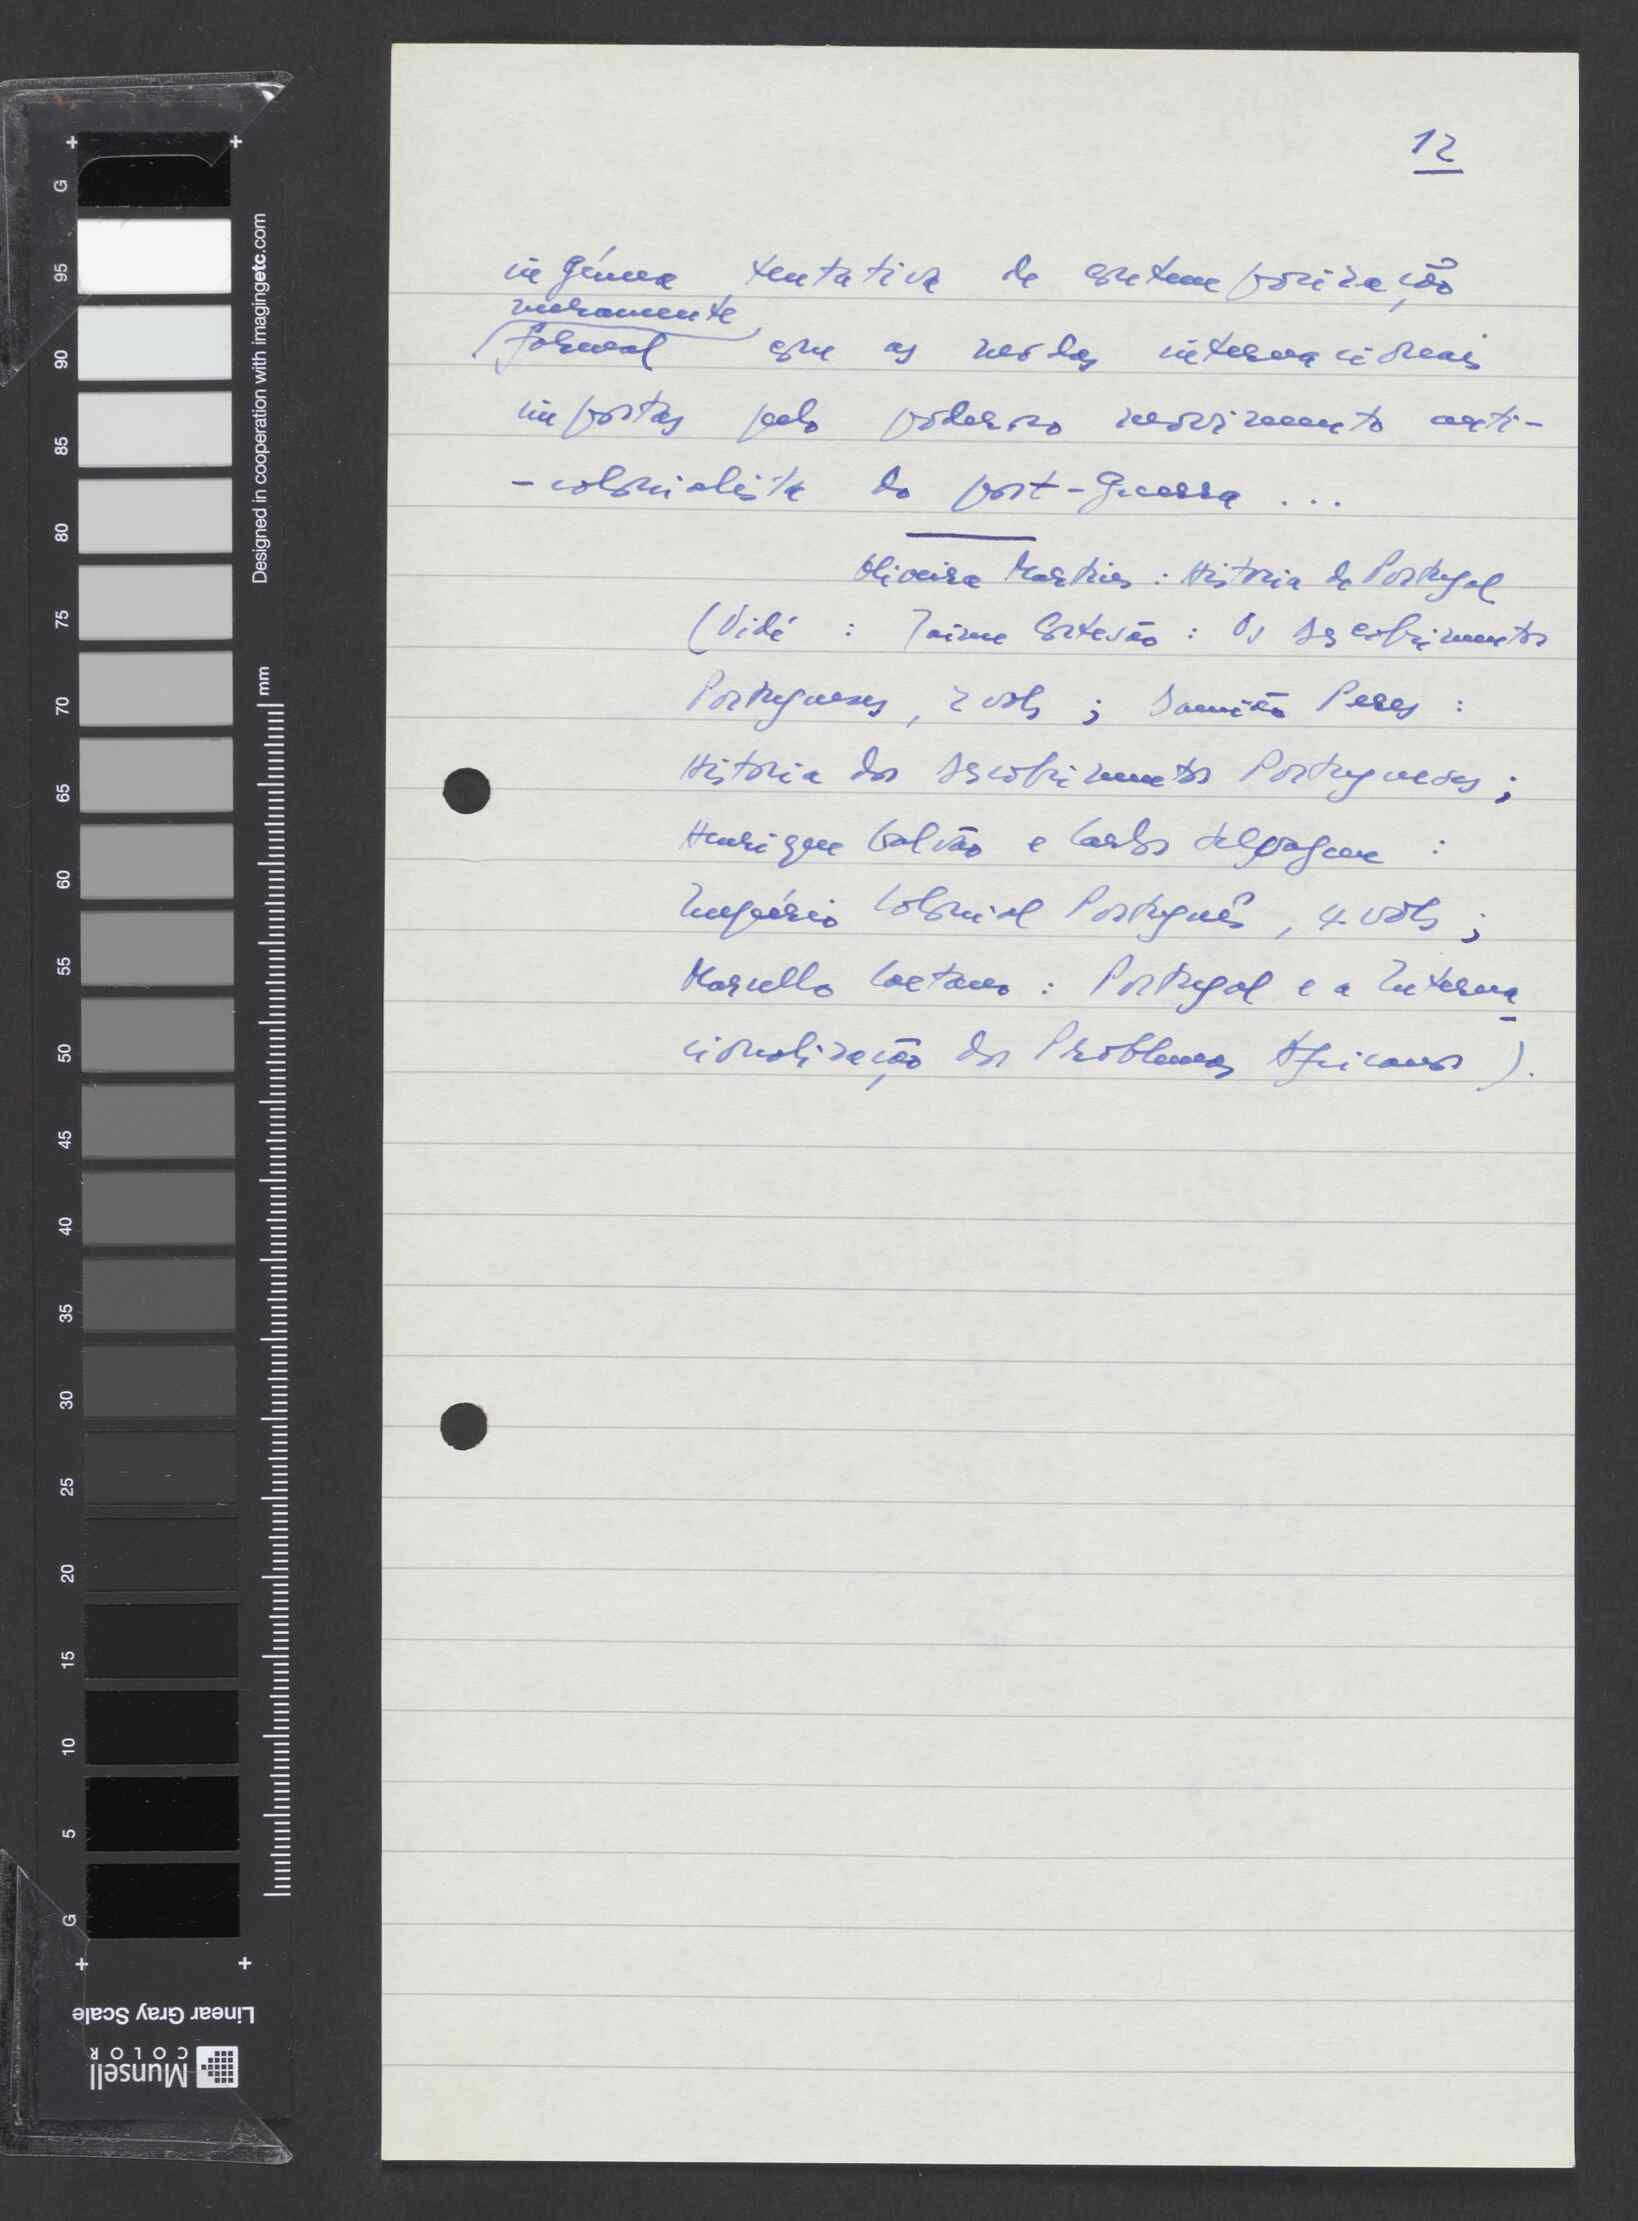 12
ingénua tentativa de contemporização
meramente
formal com as modas internacionais
impostas pelo poderoso movimento anti-
-colonialista do post-guerra ...
Oliveira Martins : Historia de Portugal
(Vidé : Jaime Cortesão : Os Descobrimentos
Portugueses, 2 vols ; Damião Peres :
Historia dos Descobrimentos Portugueses ;
Henrique Galvão e Carlos Selvagem :
Império Colonial Português, 4 vols ;
Marcello Caetano : Portugal e a Interna
cionalização dos Problemas Africanos ).
Designed in cooperation with imagingetc.com
mm
G 95 90 85 80 75 70 65 60 55 50 45 40 35 30 25 20 15 10 5 G
Linear Gray Scale
Munsell
COLOR